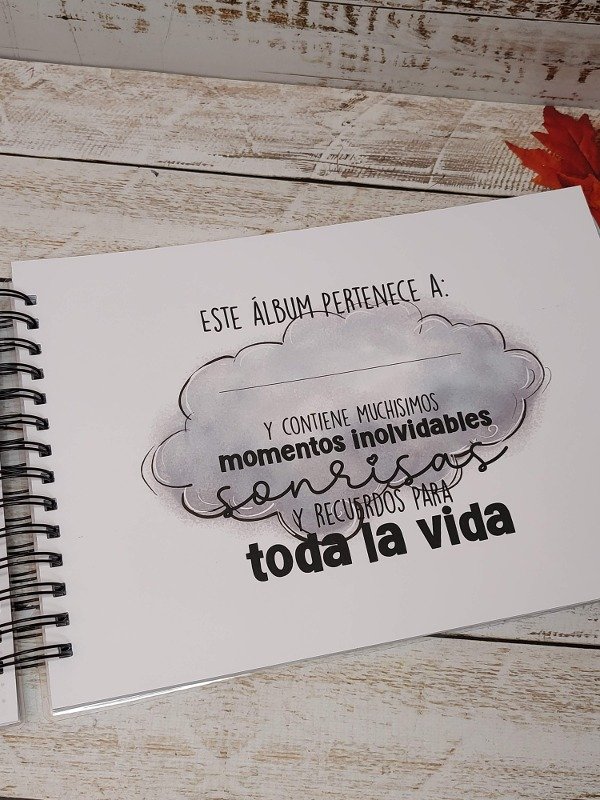 ESTE ÁLBUM PERTENECE A:
Y CONTIENE MUCHISIMOS
momentos inolvidables
sonrisas
Y RECUERDOS PARA
toda la vida